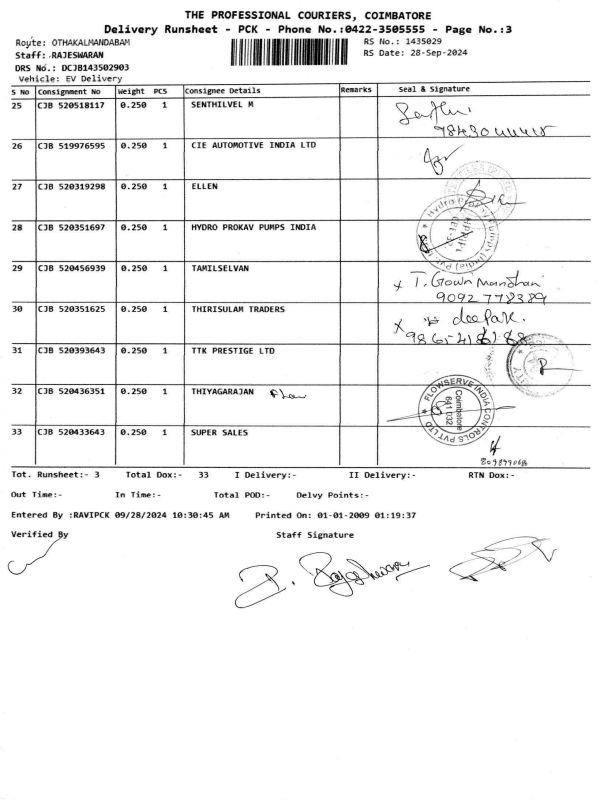 THE PROFESSIONAL COURIERS, COIMBATORE
Delivery Runsheet - PCK - Phone No.:0422-3505555 - Page No.:3
Route: OTHAKALMANDABAM RS No.: 1435029
Staff: RAJESWARAN RS Date: 28-Sep-2024
DRS No.: DCJB143502903
Vehicle: EV Delivery
S No Consignment No Weight PCS Consignee Details Remarks Seal & Signature
25 CJB 520518117 0.250 1 SENTHILVEL M
26 CJB 519976595 0.250 1 CIE AUTOMOTIVE INDIA LTD
27 CJB 520319298 0.250 1 ELLEN
28 CJB 520351697 0.250 1 HYDRO PROKAV PUMPS INDIA
29 CJB 520456939 0.250 1 TAMILSELVAN
9092778389
30 CJB 520351625 0.250 1 THIRISULAM TRADERS
deepak.
31 CJB 520393643 0.250 1 TTK PRESTIGE LTD
32 CJB 520436351 0.250 1 THIYAGARAJAN
FLOWSERVE INDIA CONTROLS PVT LTD
Coimbatore
641 032
33 CJB 520433643 0.250 1 SUPER SALES
Tot. Runsheet:- 3 Total Dox:- 33 I Delivery:- II Delivery:- RTN Dox:-
Out Time:- In Time:- Total POD:- Delvy Points:-
Entered By :RAVIPCK 09/28/2024 10:30:45 AM Printed On: 01-01-2009 01:19:37
Verified By Staff Signature